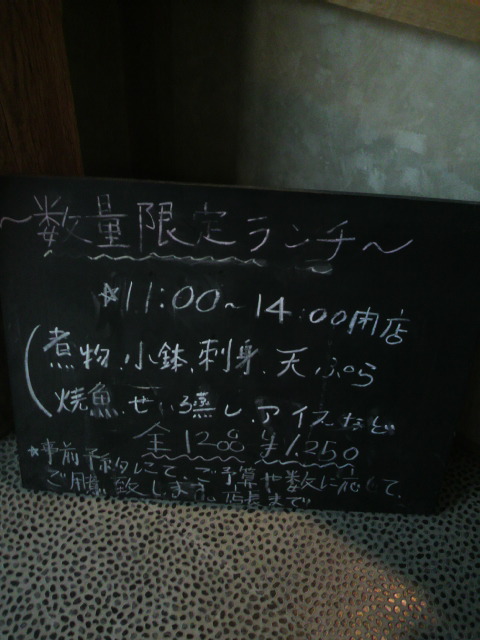 ～数量限定ランチ～
☆11:00～14:00閉店
(煮物、小鉢、刺身、天ぷら
焼魚、せいろ蒸し、アイスなど
全1200 ¥1,250
☆事前予約にて、ご予算や数に応じて、
ご用意致します。店長まで